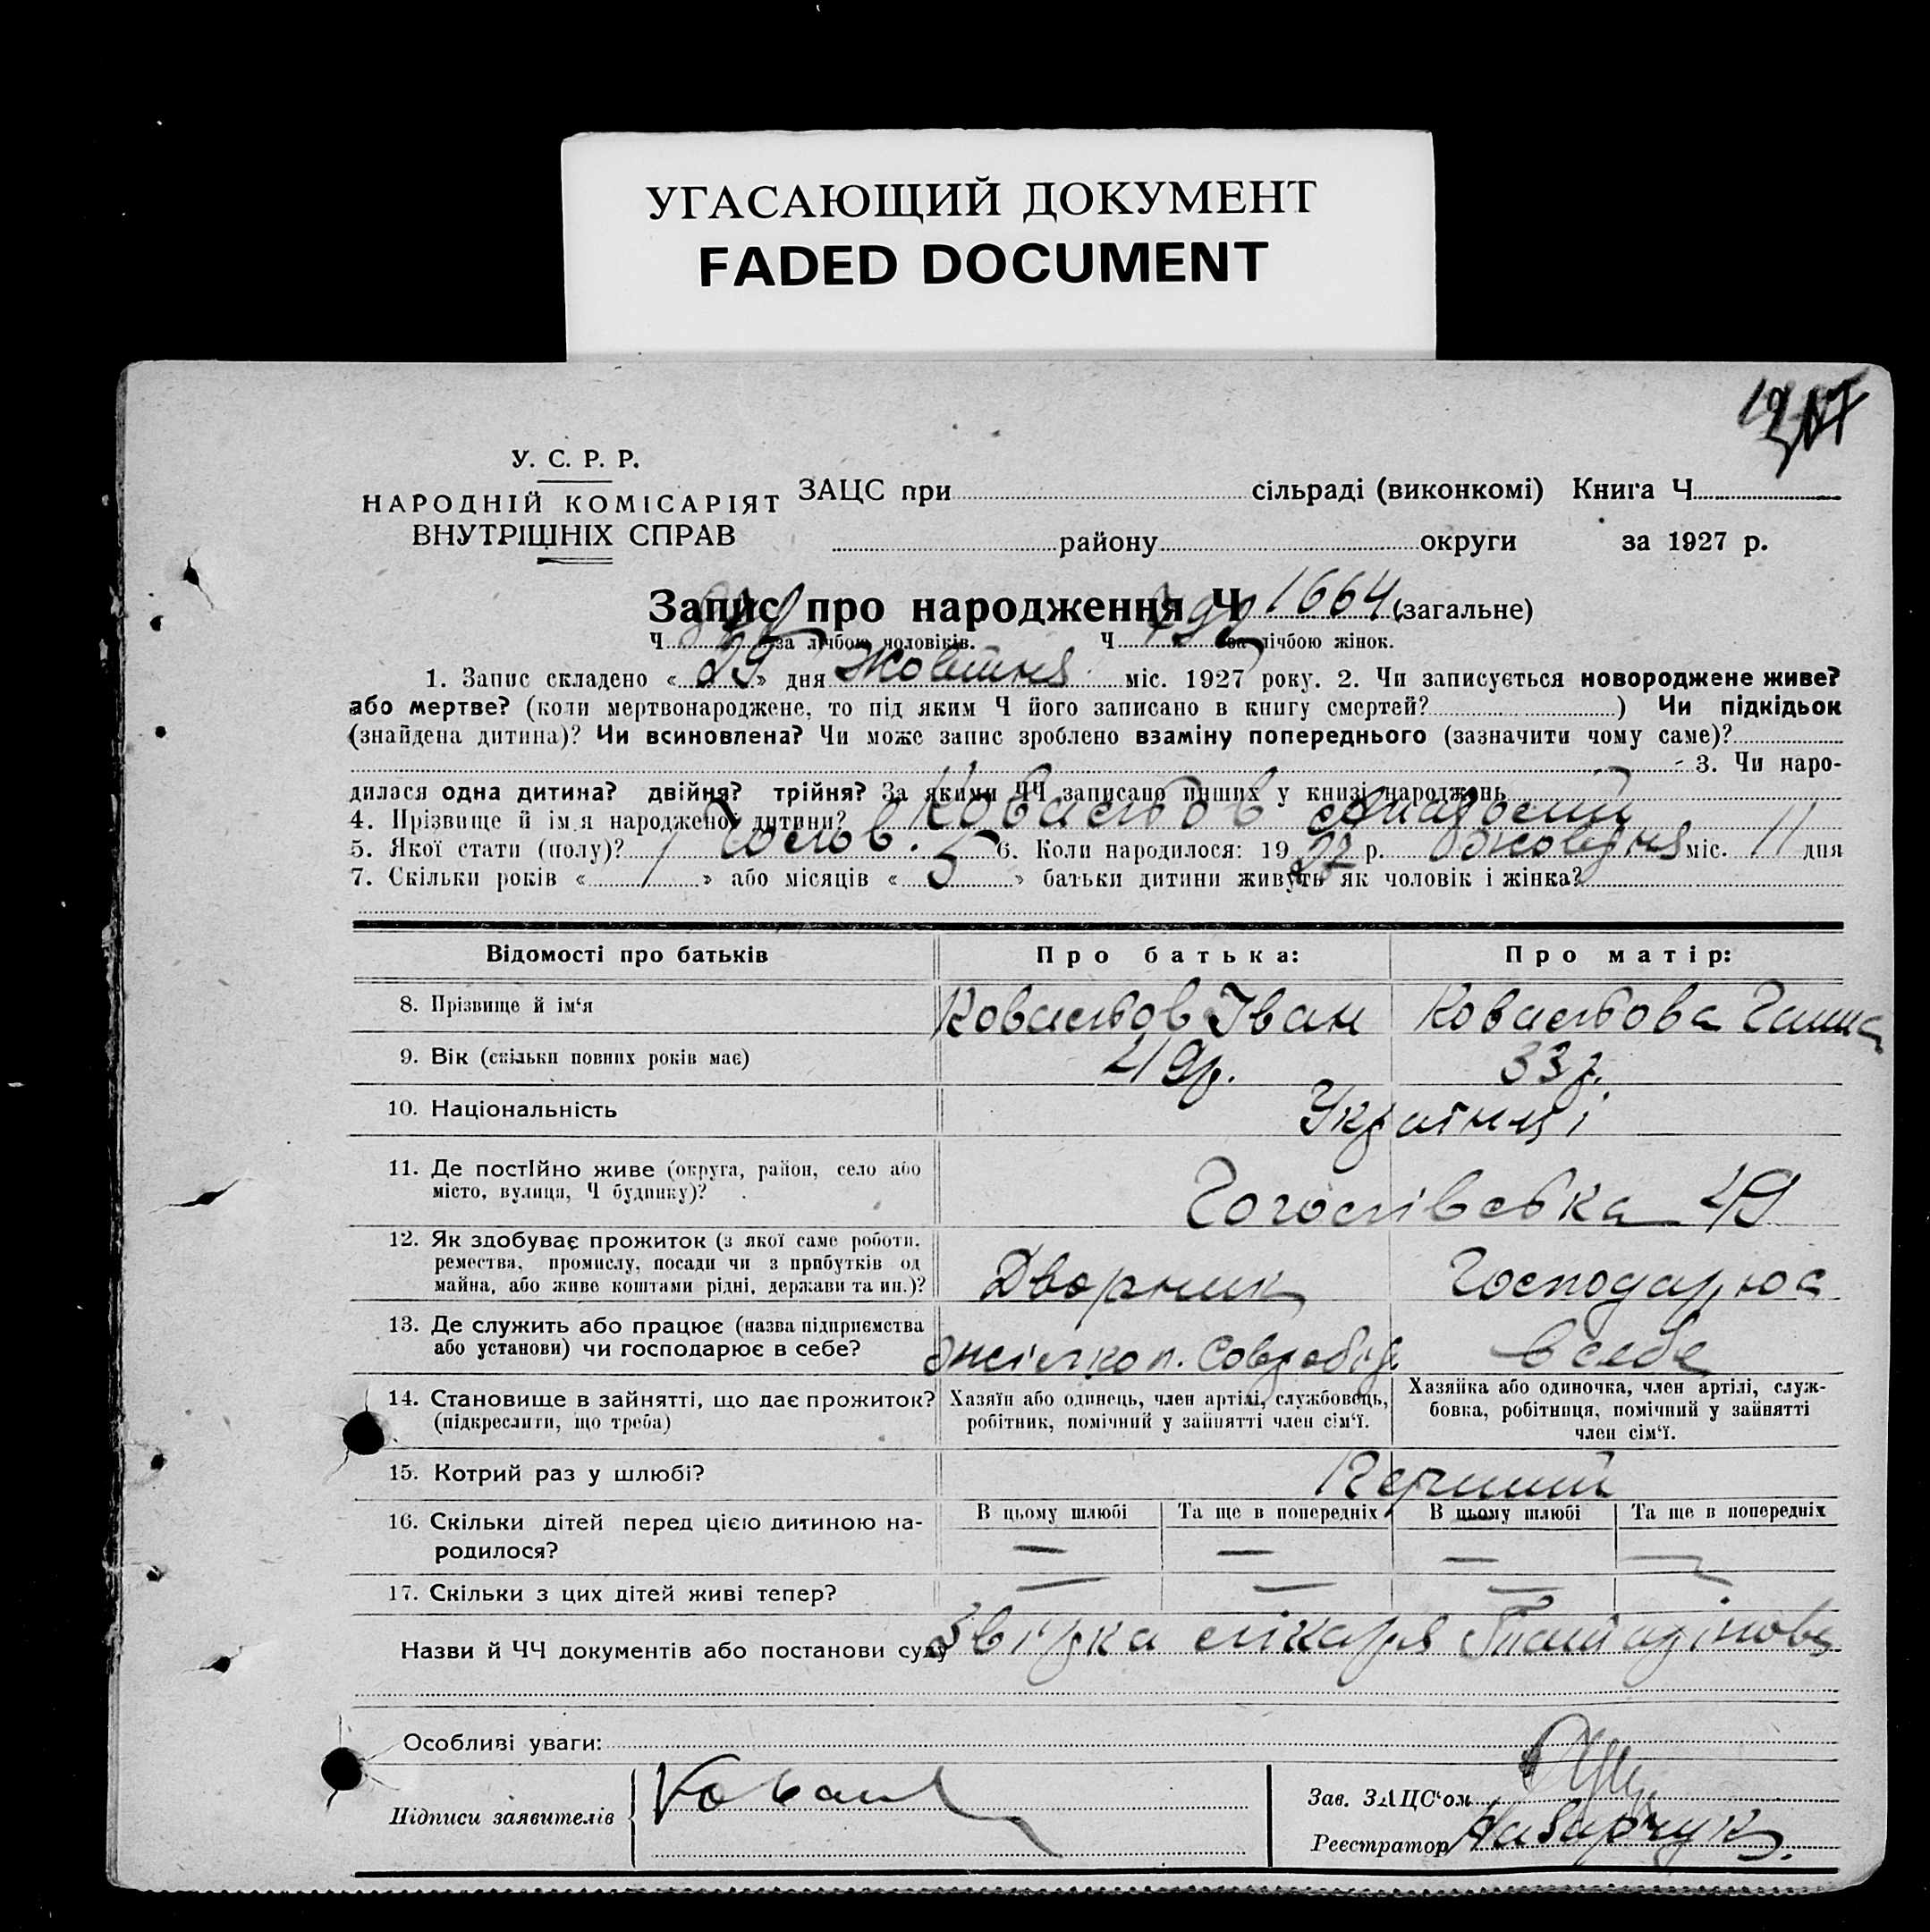 УГАСАЮЩИЙ ДОКУМЕНТ
FADED DOCUMENT
У. С. Р. Р.
НАРОДНІЙ КОМІСАРІЯТ
ВНУТРІШНІХ СПРАВ
ЗАЦС при сільраді (виконкомі) Книга Ч
району округи за 1927 р.
Запис про народження Ч 1664 (загальне)
Ч за лічбою чоловіків. Ч за лічбою жінок.
1. Запис складено « 29 » дня Жовтня міс. 1927 року. 2. Чи записується новороджене живе?
або мертве? (коли мертвонароджене, то під яким Ч його записано в книгу смертей? ) Чи підкідьок
(знайдена дитина)? Чи всиновлена? Чи може запис зроблено взаміну попереднього (зазначити чому саме)?
3. Чи наро-
дилася одна дитина? двійня? трійня? За якими ЧЧ записано інших у книзі народжень
4. Прізвище й ім.я народженої дитини?
5. Якої стати (полу)? Чолов. 6. Коли народилося: 19 27 р. Жовтня міс. 11 дня
7. Скільки років « / » або місяців « 5 » батьки дитини живуть як чоловік і жінка?
Відомості про батьків Про батька: Про матір:
8. Прізвище й ім‘я Ковальов Іван Ковальова Ганна
9. Вік (скільки повних років має) 49р. 33р.
10. Національність Українці
11. Де постійно живе (округа, район, село або
місто, вулиця, Ч будинку)? Гоголівська 49
12. Як здобуває прожиток (з якої саме роботи,
ремества, промислу, посади чи з прибутків од
майна, або живе коштами рідні, держави та ин.)? Дворник Господарює
13. Де служить або працює (назва підприємства
або установи) чи господарює в себе? Жилкоп. в себе
14. Становище в зайнятті, що дає прожиток?
(підкреслити, що треба)
Хазяїн або одинець, член артілі, службовець,
робітник, помічний у зайнятті член сім‘ї.
Хазяйка або одиночка, член артілі, служ-
бовка, робітниця, помічний у зайнятті
член сім‘ї.
15. Котрий раз у шлюбі? Перший
16. Скільки дітей перед цією дитиною на-
родилося?
В цьому шлюбі Та ще в попередніх В цьому шлюбі Та ще в попередніх
— — — —
17. Скільки з цих дітей живі тепер? — — — —
Назви й ЧЧ документів або постанови суду Звідка лікаря
Особливі уваги:
Підписи заявителів
Зав. ЗАЦС‘ом
Реєстратор Назарчук